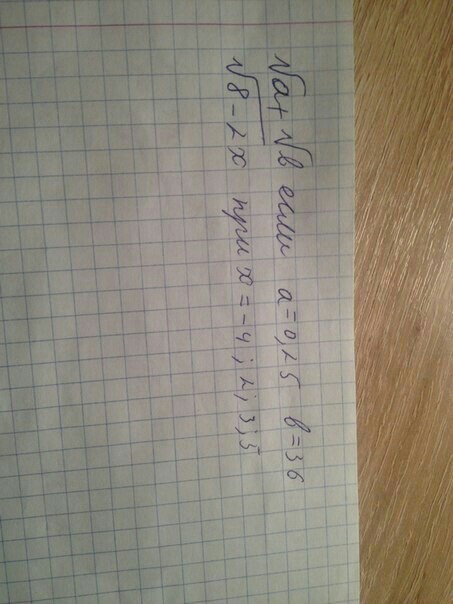 √a + √b если a = 0,25 b = 36
√8 - 2x при x = -4; 2; 3,5